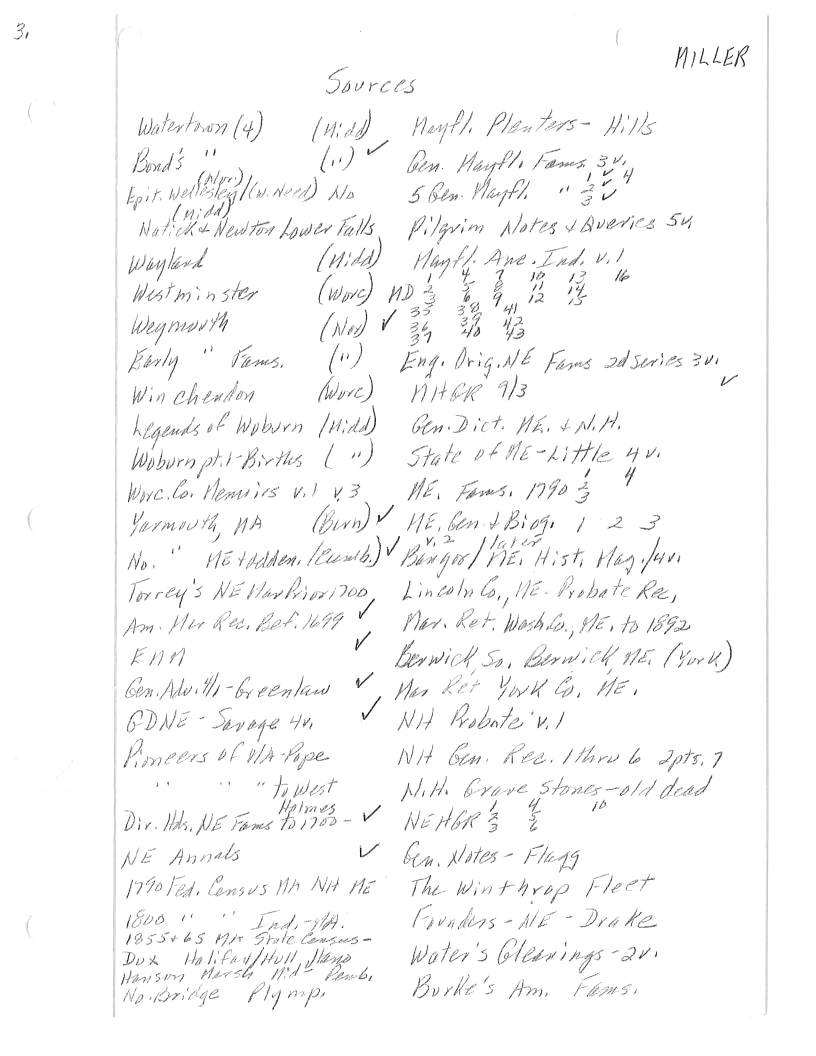 3.
MILLER
Sources
Watertown (4) (Midd)
Bond's " (") ✓
(Nor.)
Epit. Wellesley/(W. Need) No
(Midd)
Natick + Newton Lower Falls
Wayland (Midd)
Westminster (Worc)
Weymouth (Nor) ✓
Early " Fams. (")
Winchendon (Worc)
Legends of Woburn (Midd)
Woburn pt.1-Births (")
Worc. Co. Memoirs v.1 v.3
Yarmouth, MA (Barn) ✓
No. " ME + adden. (Cumb.) ✓
Torrey's NE Mar Prior 1700
Am. Mar Rec. Bef. 1699 ✓
EMM ✓
Gen. Adv. 4/1 - Greenlaw ✓
GDNE - Savage 4v. ✓
Pioneers of MA - Pope
" " " to West
Holmes
Dir. Hds. NE Fams to 1700 - ✓
NE Annals ✓
1790 Fed. Census MA NH ME
1800 " " Ind. - MA.
1855 + 65 MA State Census -
Dux Halifax/Hull, Hano
Hanson Marsh Mid- Pemb.
No. Bridge Plymp.
Mayfl. Planters - Hills
Gen. Mayfl. Fams. 3v.
1 ✓ 4
5 Gen. Mayfl. " 2 ✓
3 ✓
Pilgrim Notes + Queries 5v.
Mayfl. Anc. Ind. v.1
1 4 7 10 13 16
MD 2 5 8 11 14
3 6 9 12 15
35 38 41
36 39 42
37 40 43
Eng. Orig. NE Fams 2d series 3v.
✓
MHGR 9/3
Gen. Dict. ME. + N.H.
State of ME - Little 4v.
1 4
ME. Fams. 1790 2
3
ME. Gen. + Biog. 1 2 3
v.2 later
Bangor/ME. Hist. Mag./4v.
Lincoln Co., ME. Probate Rec,
Mar. Ret. Wash. Co., ME. to 1892
Berwick, So. Berwick, ME. (York)
Mar Ret York Co. ME.
NH Probate v.1
NH Gen. Rec. 1 thru 6 2pts. 7
N.H. Grave Stones - old dead
1 4 10
NEHGR 2 5
3 6
Gen. Notes - Flagg
The Winthrop Fleet
Founders - NE - Drake
Water's Gleanings - 2v.
Burke's Am. Fams.